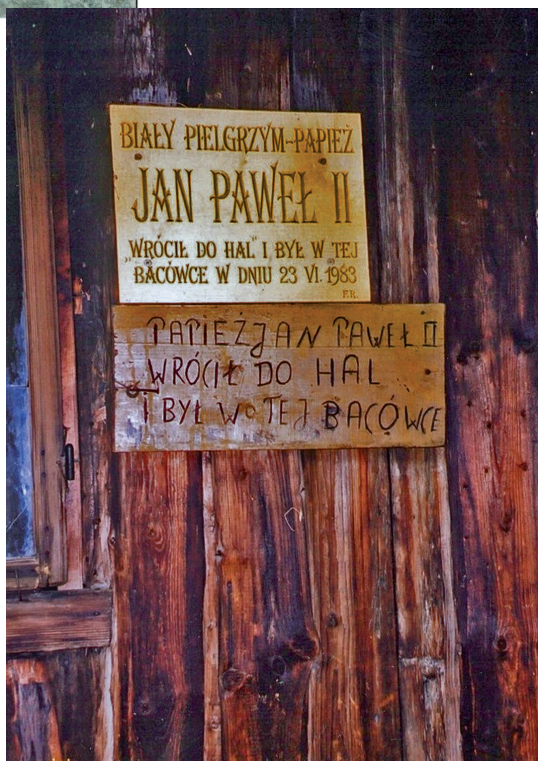 BIAŁY PIELGRZYM-PAPIEŻ
JAN PAWEŁ II
"WRÓCIŁ DO HAL" I BYŁ W TEJ
BACÓWCE W DNIU 23 VI. 1983
F.R.
PAPIEŻ JAN PAWEŁ II
WRÓCIŁ DO HAL
I BYŁ W TEJ BACÓWCE